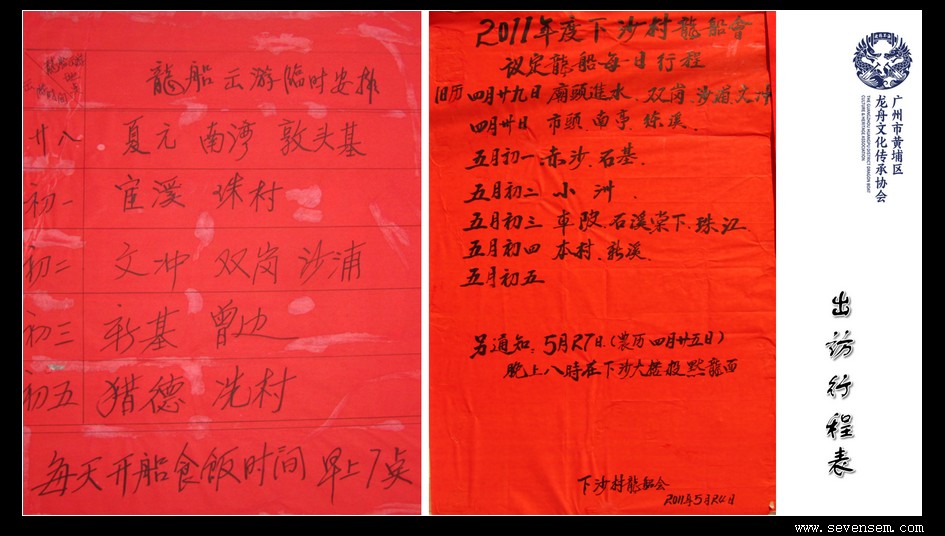 龍船出游臨时安排
廿八 夏元 南湾 敦头基
初一 宦溪 珠村
初二 文冲 双岗 沙浦
初三 新基 曾边
初五 猎德 冼村
每天开船食飯时间 早上7点
2011年度下沙村龍船會
议定龍船每日行程
旧历 四月廿九日 廟頭進水.双岗.沙浦.文冲
四月卅日 市頭.南亭.珠溪.
五月初一 赤沙.石基.
五月初二 小洲.
五月初三 車陂.石溪棠下.珠江
五月初四 本村.新溪.
五月初五
另通知:5月27日.(農历四月廿五日)
晚上八時在下沙大
龍
下沙村龍船会
2011年5月24日
广州市黄埔区
龙舟文化传承协会
THE GUANGZHOU HUANGPU DISTRICT DRAGON BOAT
CULTURE & HERITAGE ASSOCIATION
出访行程表
www.sevensem.com